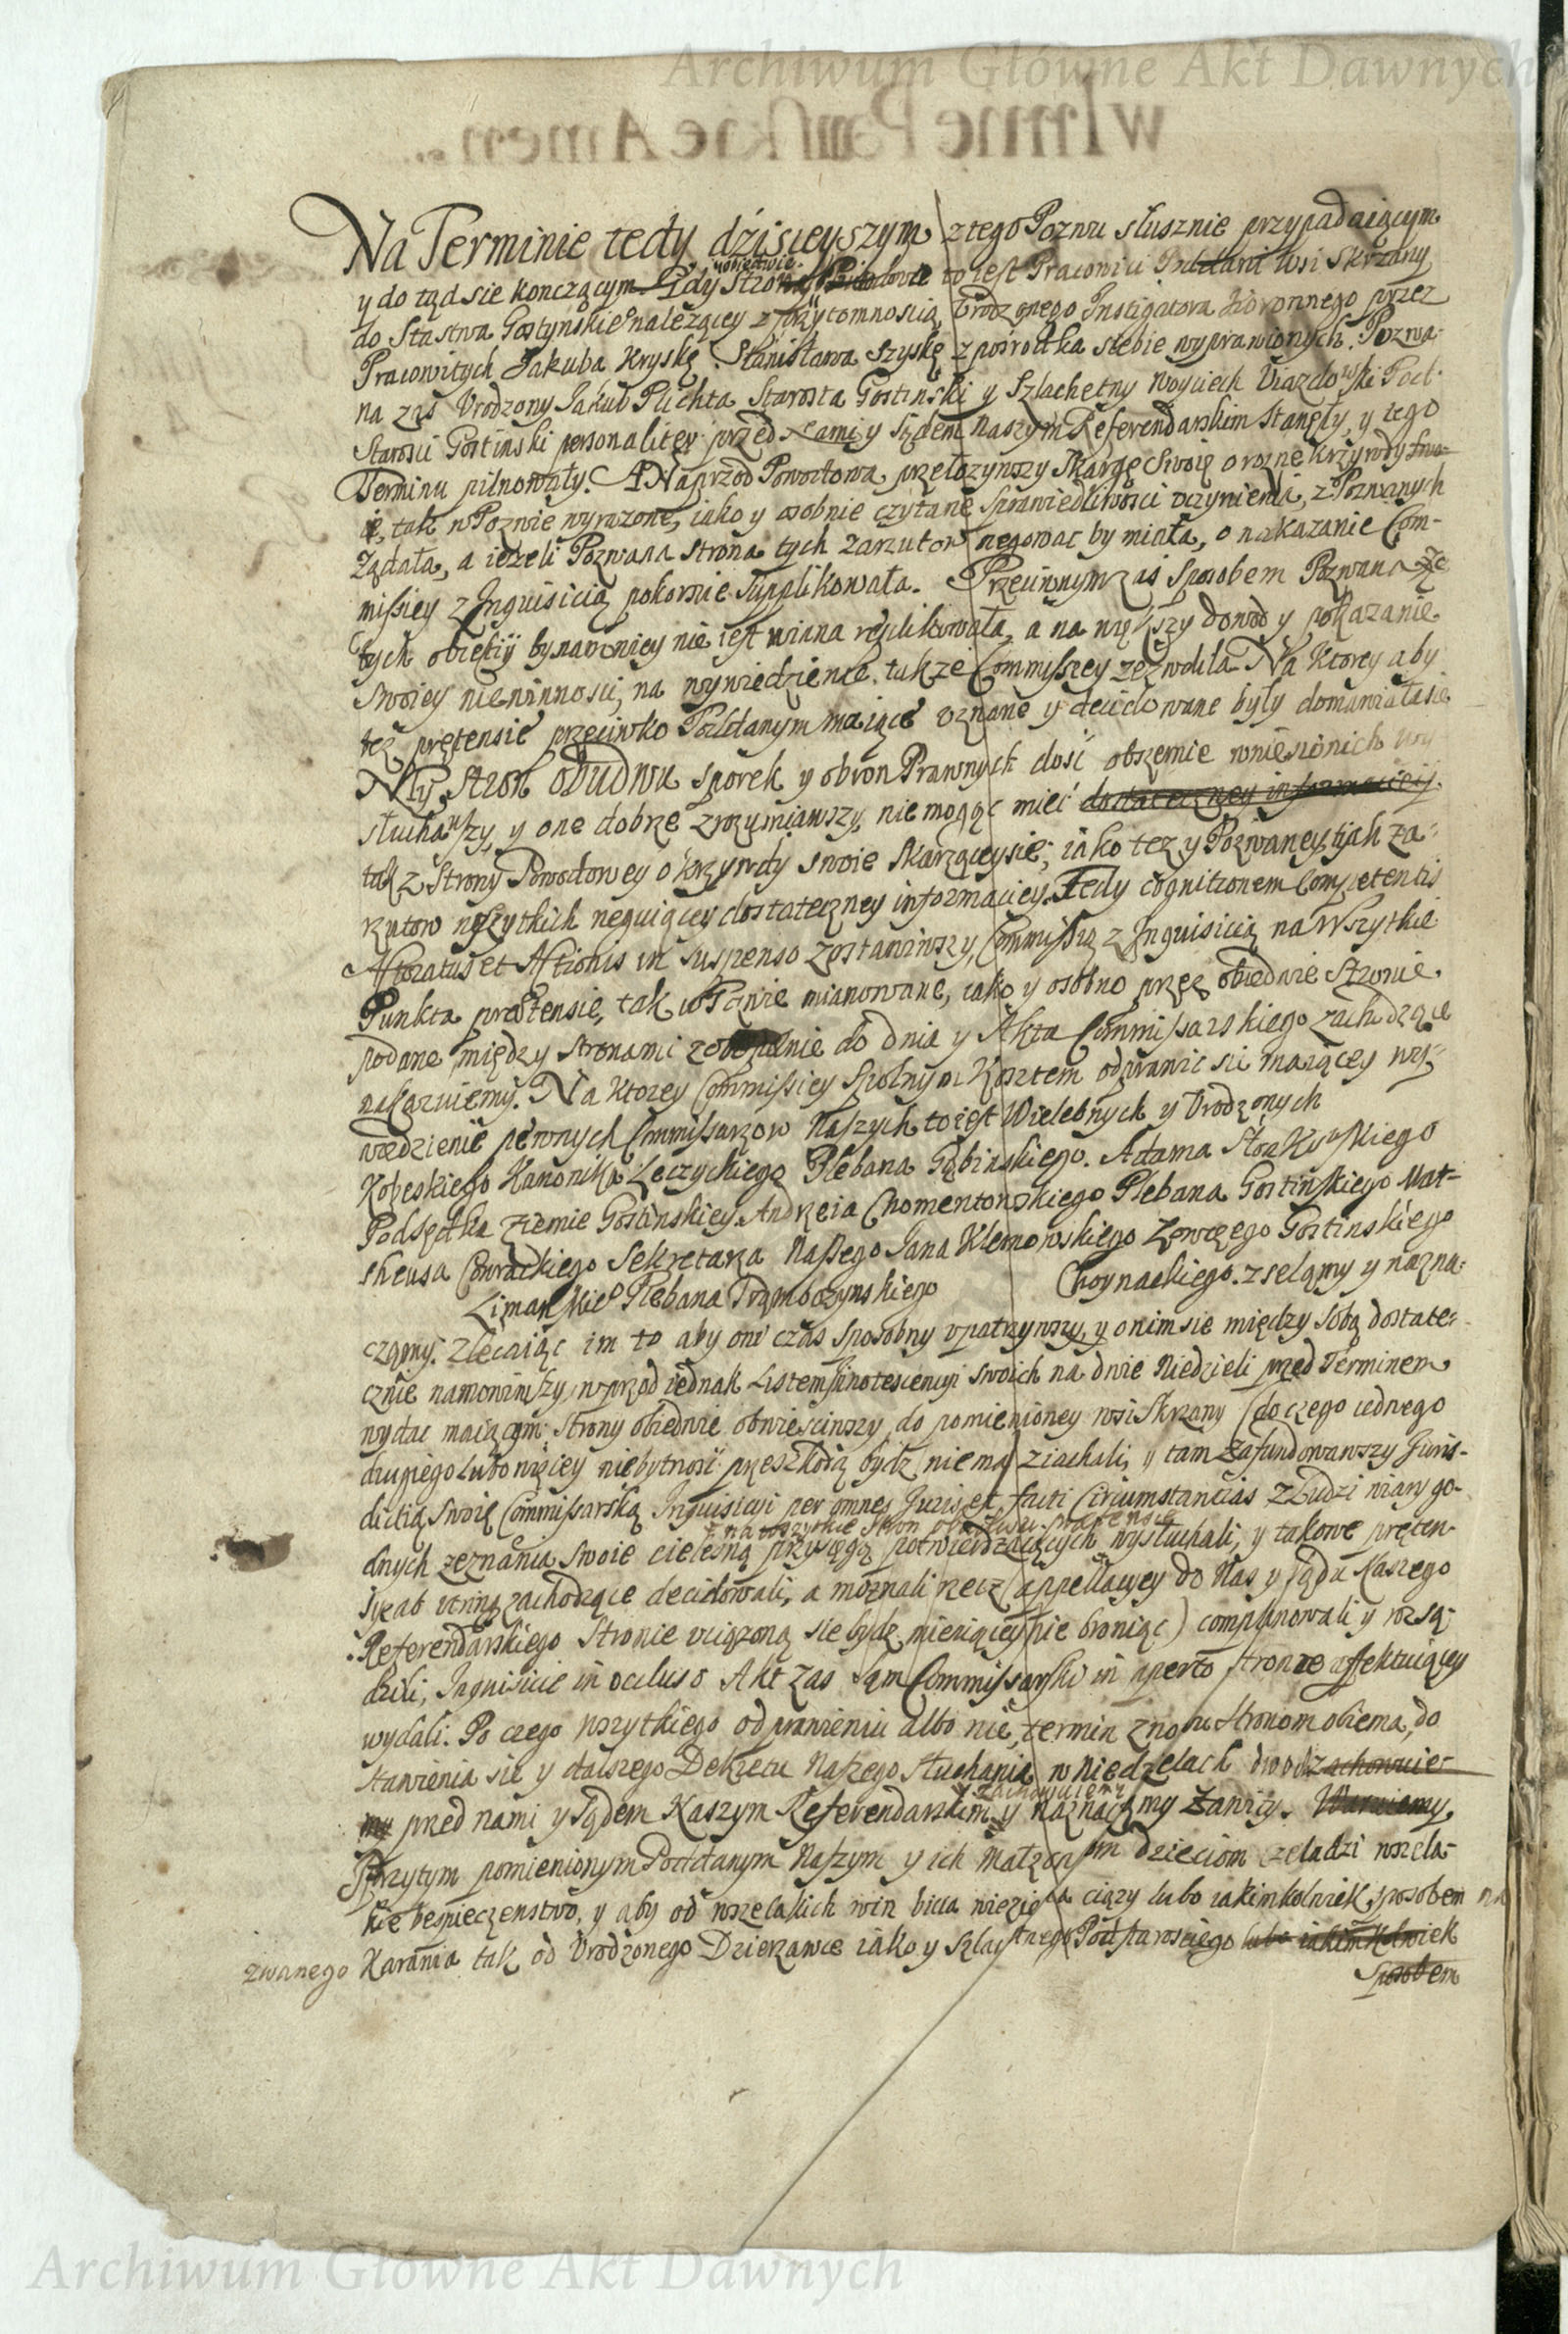 Archiwum Główne Akt Dawnych
w Imie Pańskie Amen
Na Terminie tedy dzisieyszym z tego Pozwu słusznie przypadaiącym
y do tąd sie konczącym Gdy Strony obiedwie Powodowie to iest Pracowici Poddani wsi Skrzany
do Stastwa Gostynskiego należącey z przytomnoscią Urodzonego Instigatora Koronnego przez
Pracowitych Jakuba Kryskę Stanisława Szyskę z posrodka siebie wyprawionych. Pozwa-
na zas Urodzony Jakub Plichta Starosta Gostinski y Szlachetny Woyciech Uiazdowski Pod-
Starosci Gostinski personaliter przed Nami y Sądem Naszym Referendarskim stanęły, y tego
Terminu pilnowały. A Naprzod Powodowa przełozywszy Skargę Swoię o rozne krzywdy swo-
ie, tak w Pozwie wyrazone, iako y osobnie czytane Sprawiedliwosci uczynienia, z Pozwanych
Ządała, a iezeli Pozwana strona tych zarzutow negowac by miała, o nakazanie Com-
missiey z Inquisicią pokornie supplikowała. Przeciwnym zas sposobem Pozwana ze
tych obiekiy bynamniey nie iest winna replikowała, a na większy dowod y pokazanie
swoiey niewinnosci, na wywiedzienie takze Commissiey zezwoliła Na ktorey aby
tez pretensie przeciwko Poddanym maiące uznane y decidowane były domawiała sie
My stron obudwu sporek y obron Prawnych dosć obszernie wniesionich wy
słuchawszy, y one dobrze zrozumiawszy, nie mogąc mieć dostateczney informaciey
tak z Strony Powodowey o krzywdy swoie skarżącey sie, iako tez y Pozwaney tych za-
rzutow wszytkich neguiącey dostateczney informaciey. Tedy cognitionem Competentis
Actoratus et Actionis in suspenso zostawiwszy, Commissią z Inquisicią na Wszytkie
Punkta pretensie, tak w Pozwie mianowane, iako y osobno przez obiedwie Stronie
podane między stronami zobopolnie do dnia y Akta Commissarskiego zachodzące
nakazuiemy. Na ktorey Commissiey Spolnym Kosztem odprawic sie maiącey wy-
wodzienie pewnych Commissarzow Naszych to iest Wielebnych y Urodzonych
Kobeskiego Kanonika Łęczyckiego Plebana Gąbinskiego. Adama
Podsędka Ziemie Gostinskiey Andrzeia Chomentowskiego Plebana Gostinskiego Mat-
theusa Sekretarza Naszego Jana Klemowskiego Gostinskiego
Plebana Trąmboczynskiego Choynackiego. zsełamy y nazna-
czamy. Zlecaiąc im to aby oni czas sposobny upatrzywszy, y o nim sie między sobą dostate-
cznie namowiwszy, wprzod iednak Listem Innotescencyi swoich na dwie Niedzieli przed Terminem
wydac maiącym; Strony obiedwie obwiesciwszy, do pomienioney wsi Skrzany (do czego iednego
drugiego lubo więcey niebytność przeszkodą bydz nie ma) ziachali, y tam Zafundowawszy Juris-
dictią Swoię Commissarską Inquisicyi per omnes Juris et facti Circumstancias z Ludzi wiary go-
na wszytkie stron obudwu pretensie
dnych zeznania swoie cielesną przysięgą potwierdzaiących wysłuchali, y takowe preten-
sye ab utrinq zachodzące decidowali, a moznali rzecz (appellacyey do Nas y Sądu Naszego
Referendarskiego Stronie uciązoną sie bydz mieniącey nie broniąc) complanowali y rozsą-
dzili, Inquisicie in ocluso Akt zas sam Commissarski in aperto stronie affektuiącey
wydali. Po czego wszytkiego odprawieniu albo nie, termin znowu Stronom obiema, do
stawienia sie y dalszego Dekretu Naszego słuchania w niedzelach dwoch zachowuie-
zachowuiemy
my przed nami y Sądem Naszym Referendarskim y naznaczamy Zawity. Waruiemy
Przytym pomienionym Poddanym Naszym y ich Małzonkom dzieciom czeladzi wszela-
kie bespieczenstwo, y aby od wszelakich win bicia więzienia ciązy lubo iakimkolwiek sposobem na
zwanego Karania tak od Urodzonego Dzierzawce iako y Szlachetnego Podstarosciego lubo iakimkolwiek
sposobem
Archiwum Główne Akt Dawnych